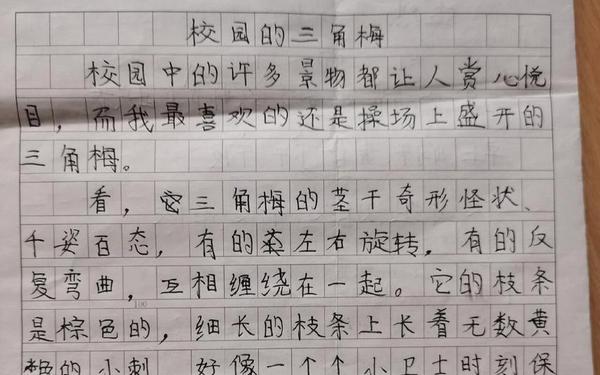 校园的三角梅
校园中的许多景物都让人赏心悦
目，而我最喜欢的还是操场上盛开的
三角梅。
看，三角梅的茎干奇形怪状、
千姿百态，有的茎左右旋转，有的反
复弯曲，互相缠绕在一起。它的枝条
是棕色的，细长的枝条上长着无数黄
色的小刺，好像一个个小卫士时刻保